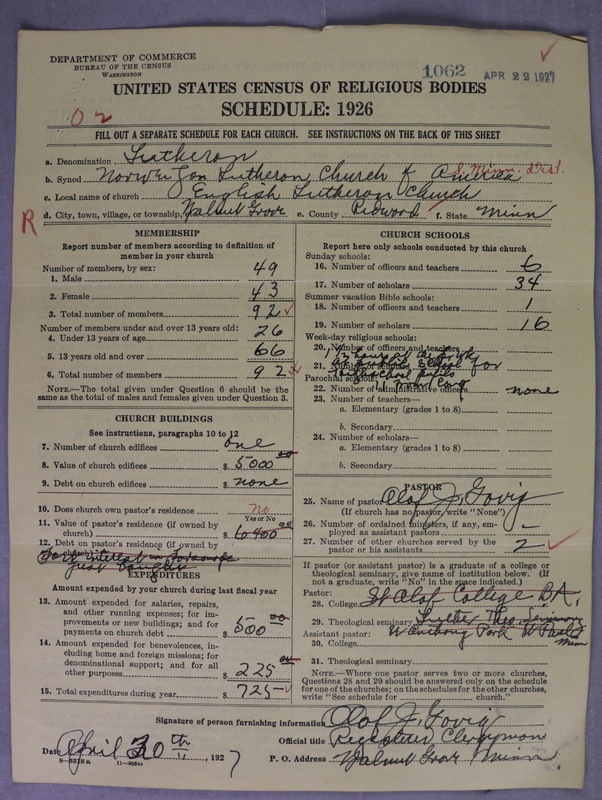 DEPARTMENT OF COMMERCE
BUREAU OF THE CENSUS
WASHINGTON
1062 APR 22 1927
UNITED STATES CENSUS OF RELIGIOUS BODIES
SCHEDULE: 1926
FILL OUT A SEPARATE SCHEDULE FOR EACH CHURCH. SEE INSTRUCTIONS ON THE BACK OF THIS SHEET
a. Denomination Lutheran
b. Synod Norwegian Lutheran Church of America S. Minn. Dist.
c. Local name of church English Lutheran Church
R
d. City, town, village, or township, Walnut Grove e. County Redwood f. State Minn
MEMBERSHIP
Report number of members according to definition of
member in your church
Number of members, by sex:
1. Male 49
2. Female 43
3. Total number of members 92
Number of members under and over 13 years old:
4. Under 13 years of age 26
5. 13 years old and over 66
6. Total number of members 92
NOTE.—The total given under Question 6 should be
same as the total of males and females given under Question 3.
CHURCH BUILDINGS
See instructions, paragraphs 10 to 12
7. Number of church edifices one
8. Value of church edifices $ 5000 00
9. Debt on church edifices $ none
10. Does church own pastor's residence? no
Yes or No
11. Value of pastor's residence (if owned by
church) $ 6400 00
12. Debt on pastor's residence (if owned by
just bought
EXPENDITURES
Amount expended by your church during last fiscal year
13. Amount expended for salaries, repairs,
and other running expenses; for im-
provements or new buildings; and for
payments on church debt $ 500 00
14. Amount expended for benevolences, in-
cluding home and foreign missions; for
denominational support; and for all
other purposes $ 225
15. Total expenditures during year $ 725
CHURCH SCHOOLS
Report here only schools conducted by this church
Sunday schools:
16. Number of officers and teachers 6
17. Number of scholars 34
Summer vacation Bible schools:
18. Number of officers and teachers 1
19. Number of scholars 16
Week-day religious schools:
20. Number of officers and teachers
21. Number of scholars
Parochial schools:
22. Number of administrative officers none
23. Number of teachers—
a. Elementary (grades 1 to 8)
b. Secondary
24. Number of scholars—
a. Elementary (grades 1 to 8)
b. Secondary
PASTOR
25. Name of pastor Olof J. Govig
(If church has no pastor, write "None")
26. Number of ordained ministers, if any, em-
ployed as assistant pastors –
27. Number of other churches served by the
pastor or his assistants 2
If pastor (or assistant pastor) is a graduate of a college or
theological seminary, give name of institution below. (If
not a graduate, write "No" in the space indicated.)
Pastor:
28. College St Olaf College BA.
29. Theological seminary Luther Theo. Seminary
Assistant pastor: St Paul Minn
30. College
31. Theological seminary
NOTE.—Where one pastor serves two or more churches,
Questions 28 and 29 should be answered only on the schedule
for one of the churches; on the schedules for the other churches,
write "See schedule for church."
Signature of person furnishing information Olof J. Govig
Official title Clergyman
Date April 20th, 1927 P. O. Address Walnut Grove Minn.